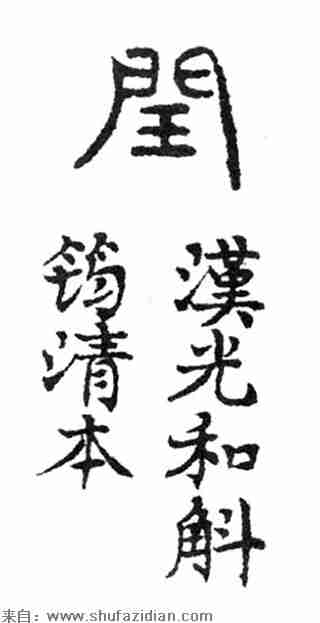 閏
漢光和斛
筠清本
来自：www.shufazidian.com